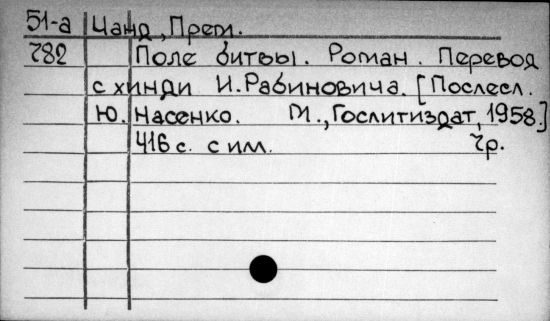 51-а Чанд, Прем.
782 Поле битвы. Роман. Перевод
с хинди И. Рабиновича. [Послесл.
Ю. Насенко. М., Гослитиздат, 1958.]
416 с. с ил. 7р.